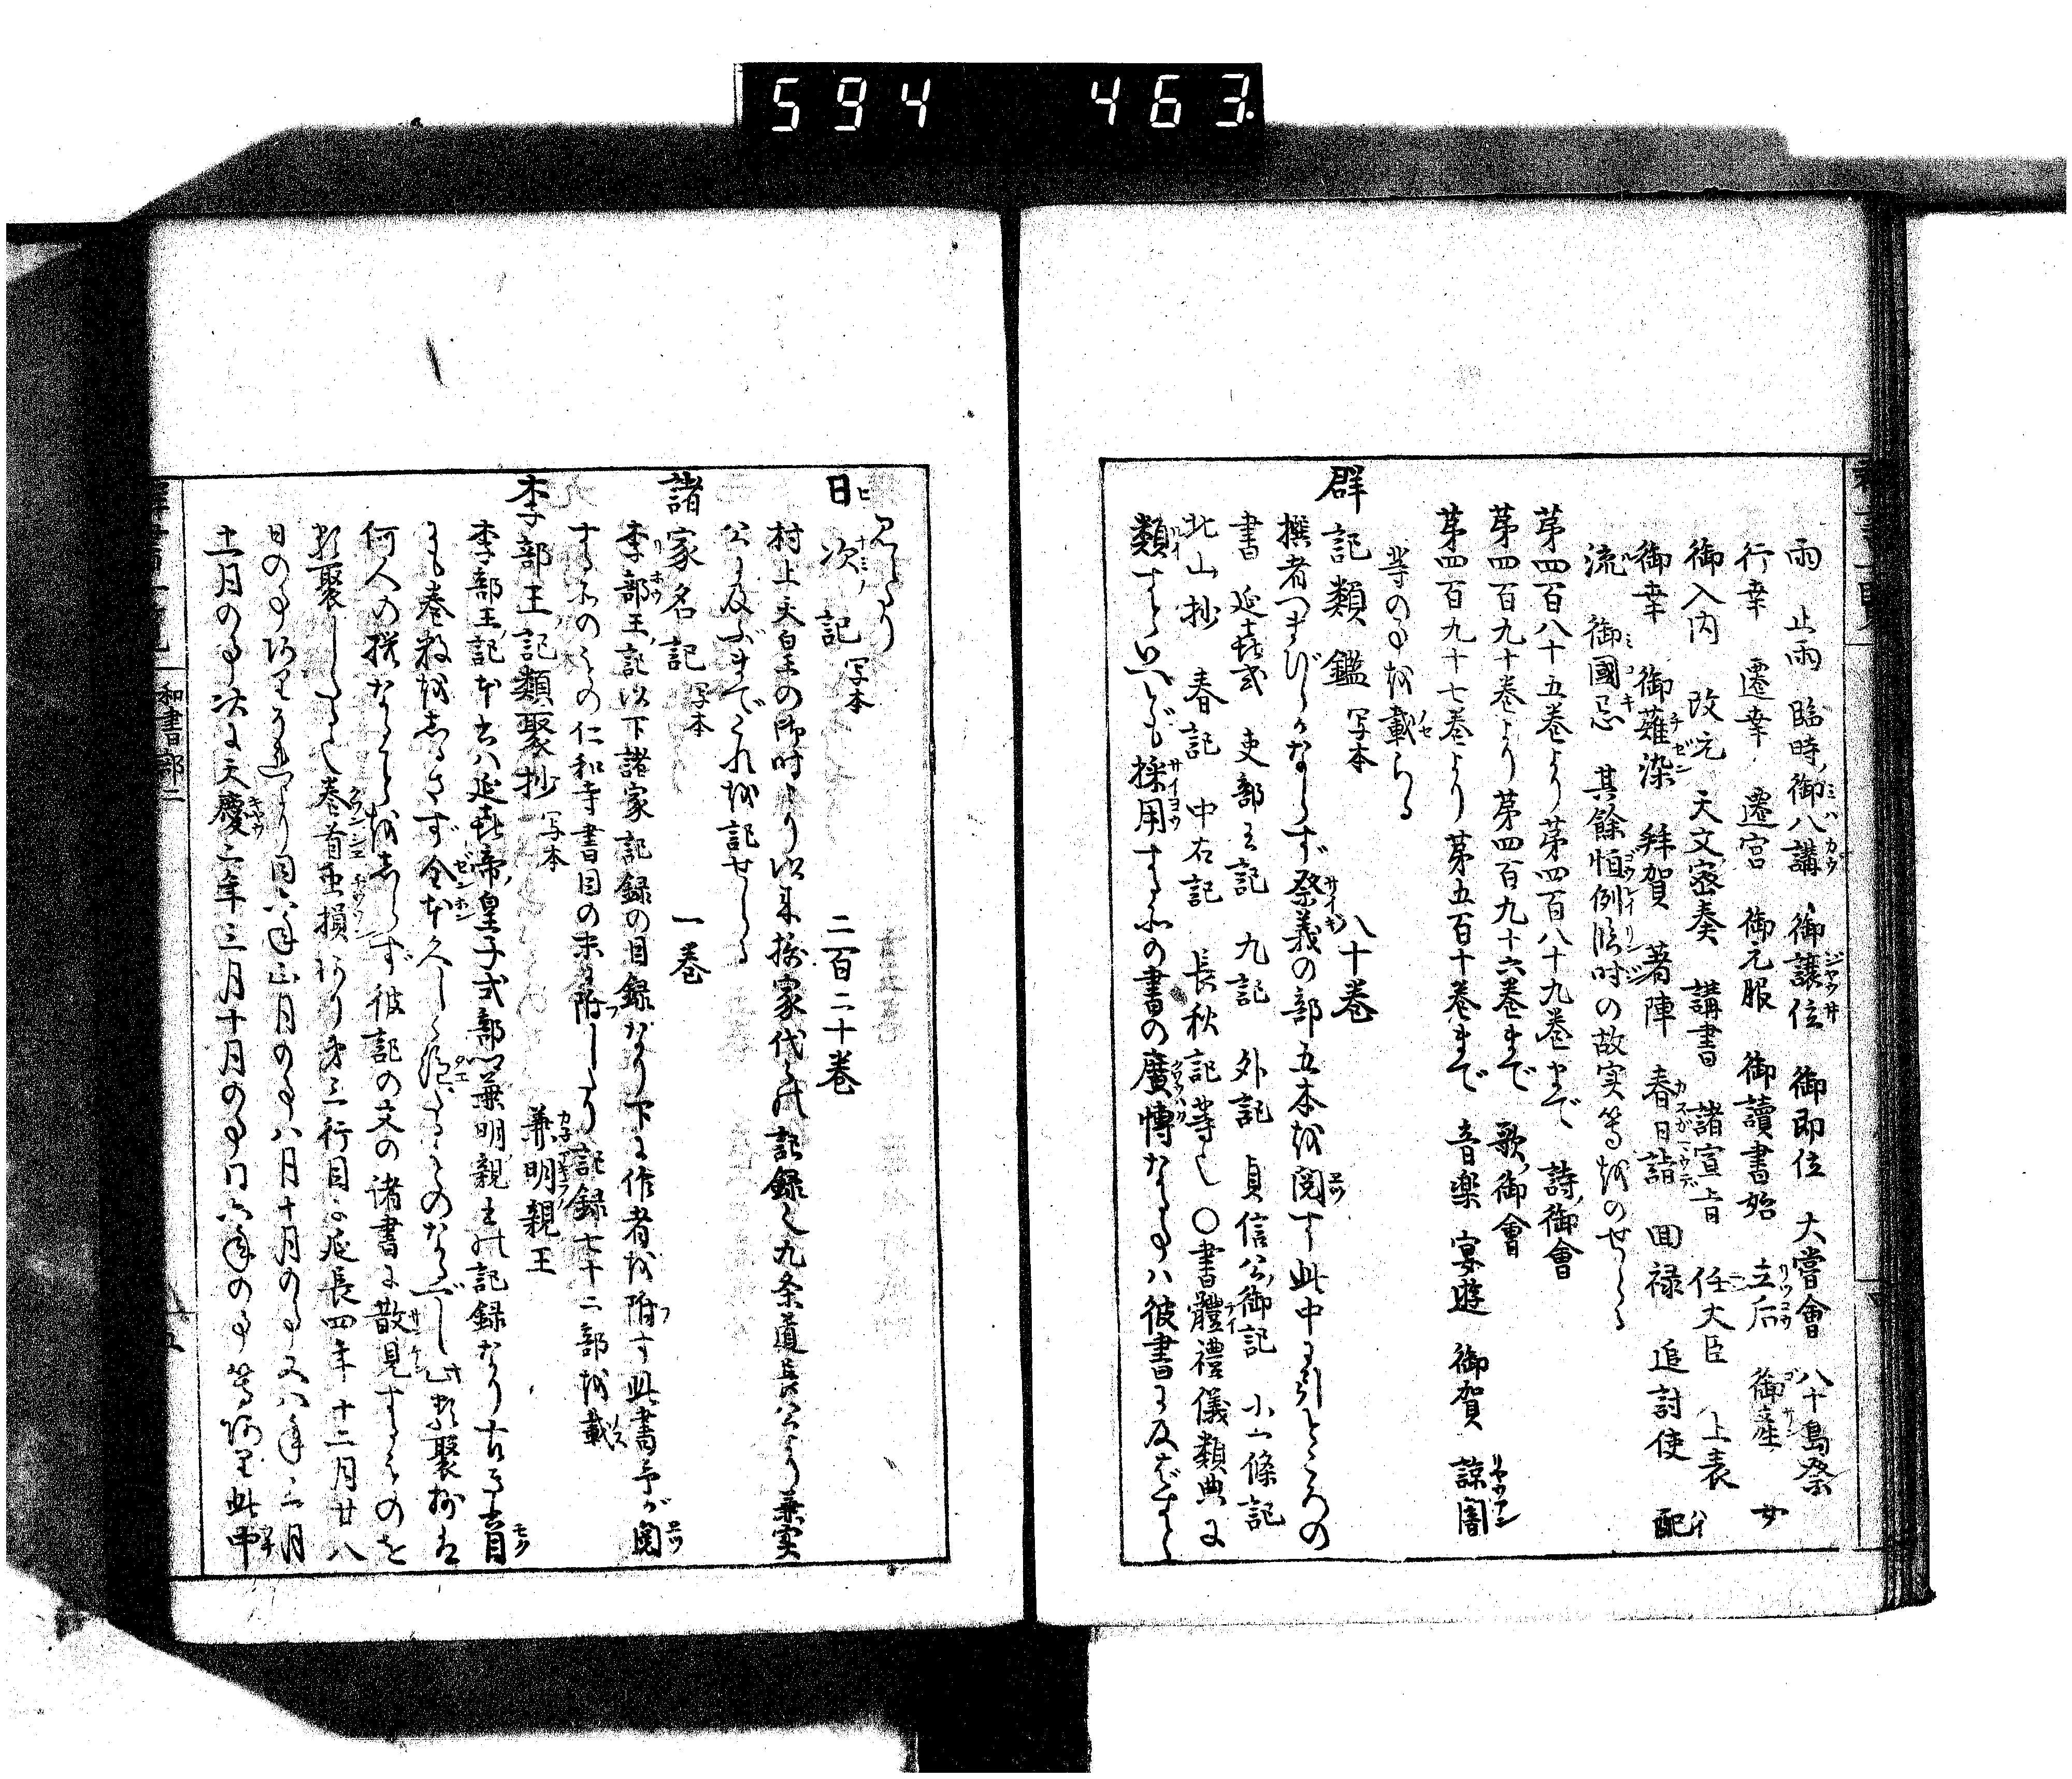 594 463
雨 止雨 臨時御八講 御譲位 御即位 大嘗會 八十島祭
行幸 遷幸 遷宮 御元服 御讀書始 立后 御産 女
御入内 改元 天文密奏 講書 諸宣旨 任大臣 上表
御幸 御薙染 拝賀 著陣 春日詣 回禄 追討使 配
流 御國忌 其餘恒例臨時の故実等をのせらる
第四百八十五巻より第四百八十九巻まで 詩御會
第四百九十巻より第四百九十六巻まで 歌御會
第四百九十七巻より第五百十巻まで 音楽 宴遊 御賀 諒闇
等の事を載らる
群記類鑑 写本 八十巻
撰者つまびらかならず祭義の部五本を閲す此中に引ところの
書 延喜式 吏部王記 九記 外記 貞信公御記 小一條記
北山抄 春記 中右記 長秋記等也 ○書體禮儀類典に
類すといへども採用する所の書の廣博なる事ハ彼書に及ばずと
見えたり
日次記 写本 二百二十巻
村上天皇の御時より以来摂家代々の記録也九条道長公より兼実
公に及ぶまでこれを記せらる
諸家名記 写本 一巻
李部王記以下諸家記録の目録なり下に作者を附す此書予が閲
する所のもの仁和寺書目の末に附したり記録七十二部を載
李部王記類聚抄 写本 兼明親王
李部王記本書ハ延喜帝皇子式部卿兼明親王の記録なり古き書目
にも巻数をしるさず全本久しく絶たるものなるべし此類聚抄は
何人の撰なることをしらず彼記の文の諸書に散見するものを
類聚したる也巻首蠧損あり第三行目に延長四年十二月廿八
日の事ありそれより同六年正月の事八月十月の事又八年二月
十一月の事次に天慶二年三月十月の事同六年の事等あり此中
和書部二
五